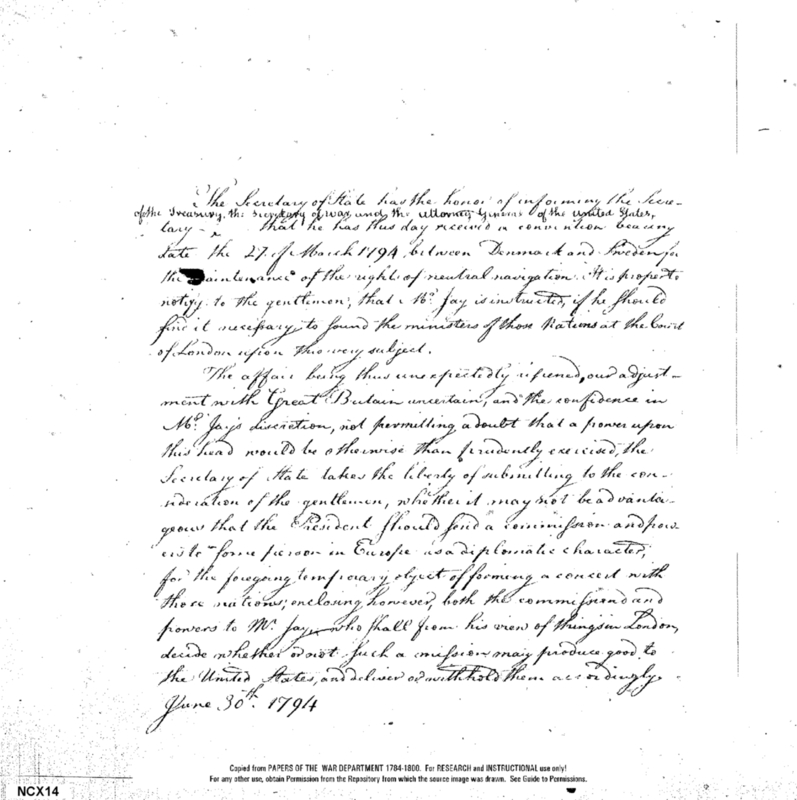 The Secretary of State has the honor of informing the Secre-
of the Treasury, the Secretary of war and the Attorney General of the United States,
tary - ^ that he has this day received a convention bearing
date the 27. of March 1794, between Denmark and Sweden for
the maintenance of the rights of neutral navigation. It is proper to
notify to the gentlemen, that Mr. Jay is instructed, if he should
find it necessary, to sound the ministers of those Nations at the Court
of London upon this very subject.
The affair being thus unexpectedly ripened, our adjust-
ment with Great Britain uncertain, and the confidence in
Mr. Jay's discretion, not permitting a doubt that a power upon
this head would be otherwise than prudently exercised, the
Secretary of State takes the liberty of submitting to the con-
sideration of the gentlemen, whether it may not be advanta-
geous that the President should send a commission and pow-
ers to some person in Europe as a diplomatic character,
for the foregoing temporary object of forming a concert with
those nations; enclosing, however, both the commission and
powers to Mr. Jay, who shall from his view of things in London,
decide whether or not such a mission may produce good to
the United States, and deliver or withhold them accordingly.
June 30th. 1794
Copied from PAPERS OF THE WAR DEPARTMENT 1784-1800. For RESEARCH and INSTRUCTIONAL use only!
For any other use, obtain Permission from the Repository from which the source image was drawn. See Guide to Permissions.
NCX14